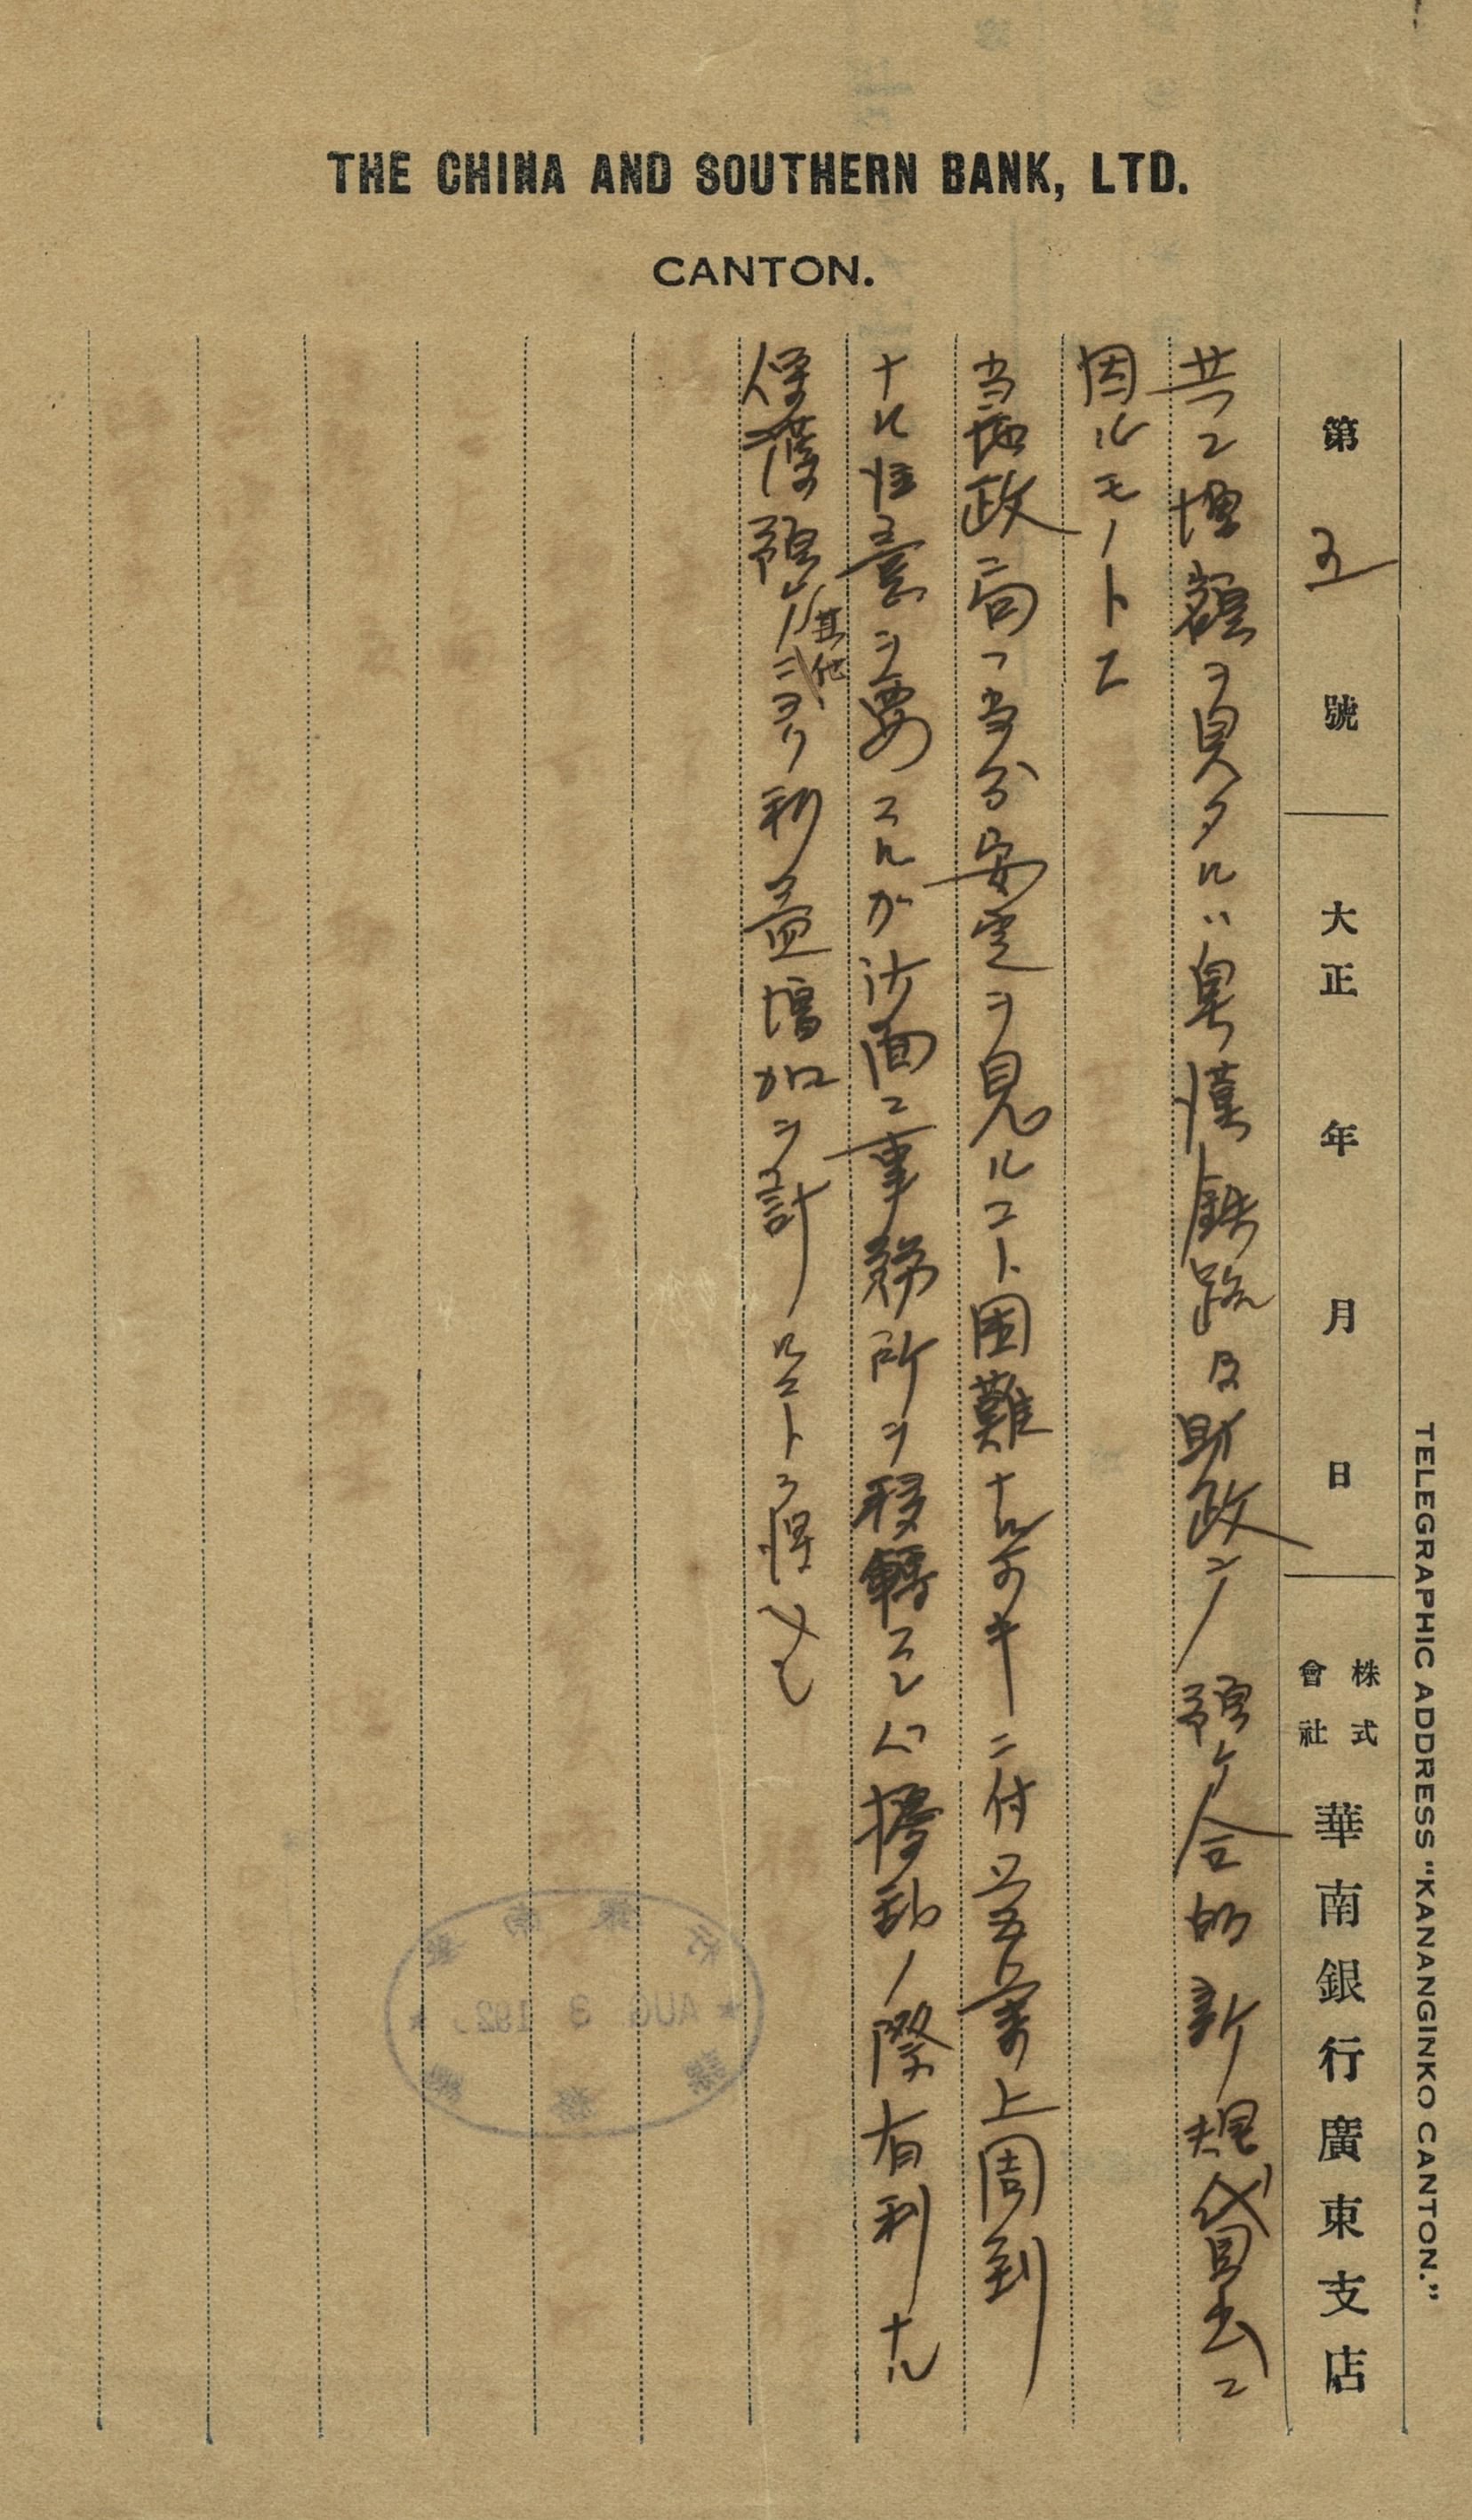 THE CHINA AND SOUTHERN BANK, LTD.
CANTON.
TELEGRAPHIC ADDRESS "KANANGINKO CANTON."
第 五 號 大正 年 月 日 株式會社 華南銀行廣東支店
共ニ増額ヲ見タルハ粤漢鉄路及財政 預ケ合的新規貸出ニ
因ルモノトス
当地政局ハ当分安定ヲ見ルコト困難ナル可キニ付 営業上周到
ナル注意ヲ要スルガ沙面ニ事務所ヲ移轉スレハ擾乱ノ際有利ナル
保護預リ其他ニヨリ利益増加ヲ計ルコトヲ得ヘシ
AUG 3 192